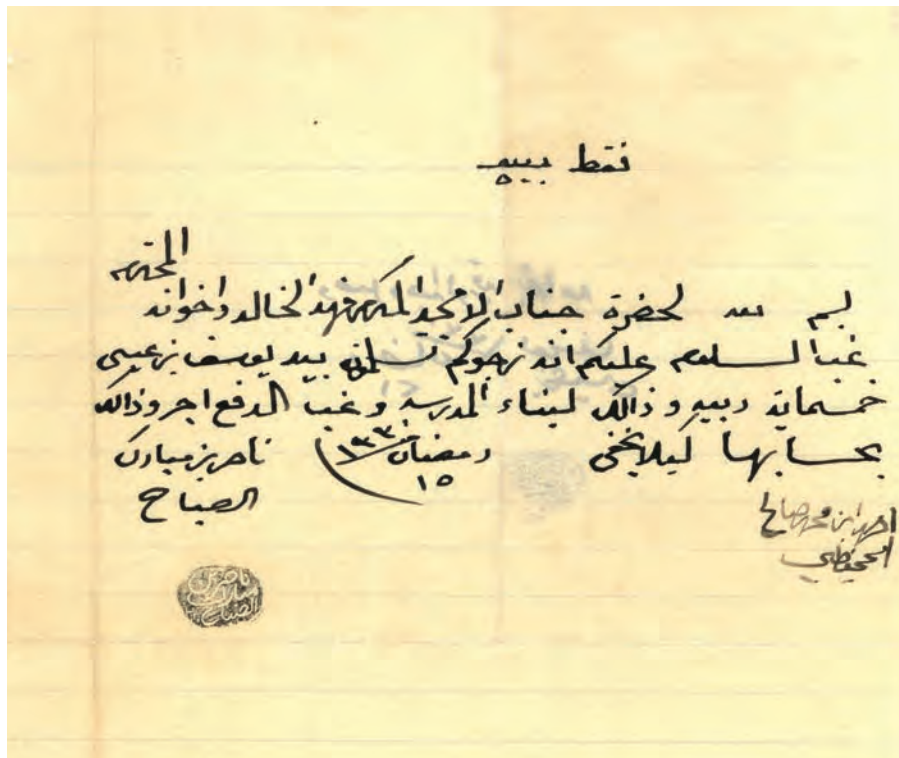 فقط ربيه
المحترم
بسم الله لحضرة جناب الامجد المكرم فهد الخالد واخوانه
غب السلام عليكم انه نرجوكم تسلمون بيد يوسف بن عيسى
خمسماية ربيه وذالك لبناء المدرسه وغب الدفع اجروذالك
بحسابها ليلا يخفى ١٥ رمضان ١٣٣٠ ناصر بن مبارك
الصباح
احمد ابن محمد صالح
الحميضي
ناصر بن
مبارك
الصباح